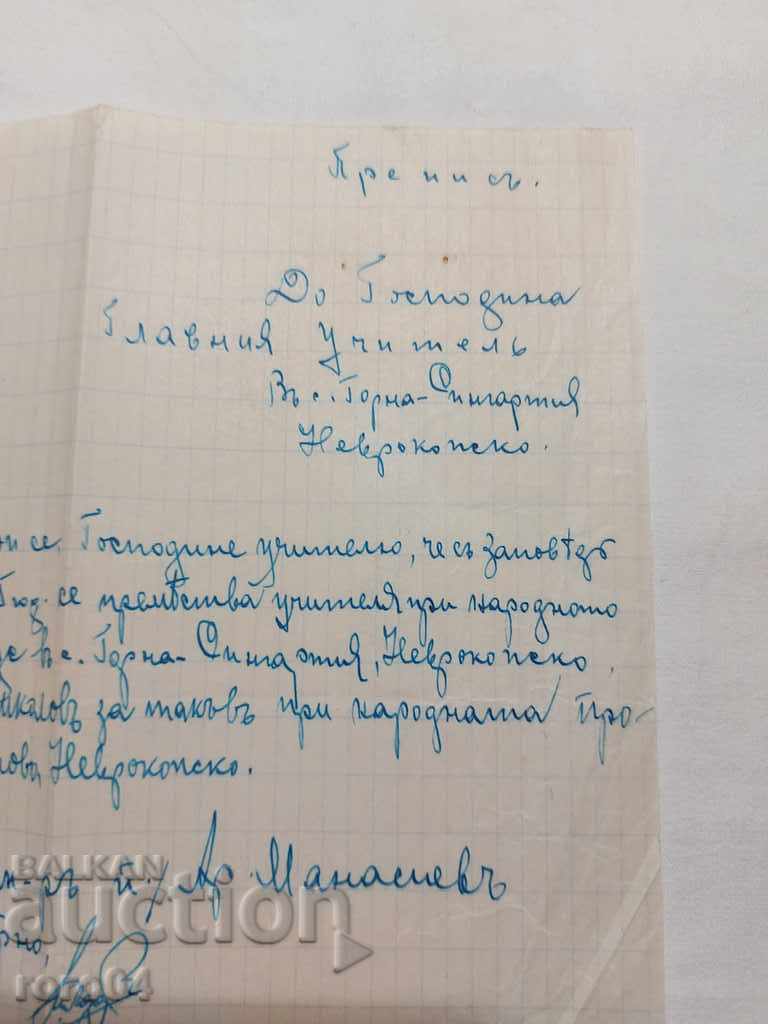 Преписъ.
До Господина
Главния Учитель
Въ с. Горна-Сингартия
Неврокопско.
се, Господине учителю, че съ заповѣдь
год. се премѣства учителя при народното
въ с. Горна-Сингартия, Неврокопско,
за такъвъ при народната про-
Неврокопско.
п./ Ар. Манасиевъ
BALKAN
auction
roro04